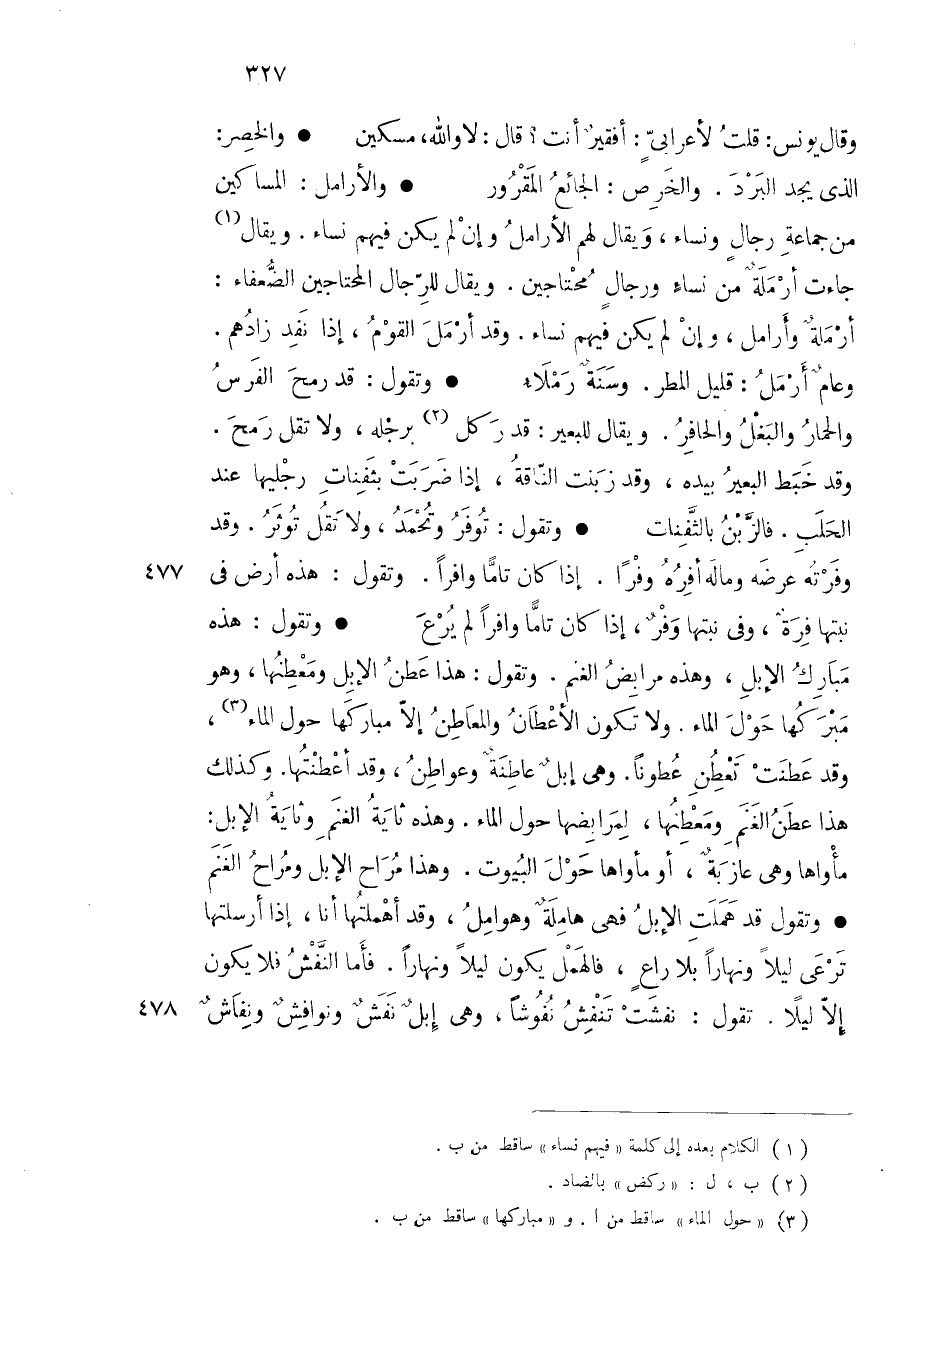 ٣٢٧
وقال يونس: قلتُ لأعرابيّ: أفقيرٌ أنت؟ قال: لا والله، مسكين ● والخصِر:
الذى يجد البَرْدَ . والخَرِص : الجائعُ المَقْرُور ● والأرامل : المساكين
من جماعةِ رجالٍ ونساء ، وَيقال لهم الأراملُ وإنْ لم يكن فيهم نساء . ويقال(١)
جاءت أرْمَلَةٌ من نساء ورجالٍ مُحْتاجين . ويقال للرِّجال المحتاجين الضُّعفاء :
أرْملةٌ وأَرامل ، وإنْ لم يكن فيهم نساء . وقد أرْمَلَ القومُ ، إذا نَفِد زادُهم .
وعامٌ أَرْمَلُ : قليل المطر . وسَنَةٌ رَمْلَاء ● وتقول : قد رمحَ الفَرسُ
والحمارُ والبَغْلُ والحافِرُ . ويقال للبعير : قد رَكل (٢) برجْله ، ولا تقل رَمحَ .
وقد خَبَط البعيرُ بيده ، وقد زبَنت النّاقةُ ، إذا ضَرَبَتْ بثَفِناتِ رجْليها عند
الحَلَبِ . فالزَّبْنُ بالثَّفِنات ● وتقول : تُوفَرُ وتُحْمَدُ ، ولا تَقُل تُوثَرُ . وقد
وفَرْتُه عرضَه ومالَه أفِرُهُ وفْرًا . إذا كان تامًّا وافراً . وتقول : هذه أرض فى ٤٧٧
نبتها فِرَةٌ ، وفى نبتها وَفْرٌ ، إذا كان تامًّا وافراً لم يُرْعَ ● وتقول : هذه
مَبَارِكُ الإبلِ ، وهذه مرابِضُ الغنم . وتقول : هذا عَطنُ الإبِلِ ومَعْطِنُها ، وهو
مَبْرَكُها حَوْلَ الماء . ولا تكون الأعْطَانُ والمعَاطِنُ إلاّ مباركَها حول الماء(٣) ،
وقد عَطَنَتْ تَعْطُنِ عُطوناً . وهى إبلٌ عاطِنَةٌ وعواطِنُ ، وقد أعْطَنْتُها . وكذلك
هذا عطَنُ الغَنَمِ ومَعْطِنُها ، لِمَرَابِضِها حول الماء . وهذه ثايَةُ الغنَمِ وثايَةُ الإبل:
مأْواها وهى عازبَةٌ ، أو مأواها حَوْلَ البُيوت . وهذا مُرَاح الإبل ومُراحُ الغَنَم
● وتقول قد هَمَلَتِ الإبلُ فهى هامِلَةٌ وهوامِلُ ، وقد أهْملتُها أنا ، إذا أرسلتها
تَرْعَى ليلاً ونهاراً بلا راعٍ ، فالهَمْل يكون ليلاً ونهاراً . فأما النَّفْشُ فلا يكون
إلاّ ليلًا . تقول : نفشَتْ تَنْفِشُ نُفُوشاً ، وهى إبلٌ نَفَشٌ ونوافِشٌ ونِفاَشٌ ٤٧٨
(١) الكلام بعده إلى كلمة «فيهم نساء» ساقط من ب .
(٢) ب ، ل : «ركض» بالضاد .
(٣) «حول الماء» ساقط من ا . و «مباركها» ساقط من ب .